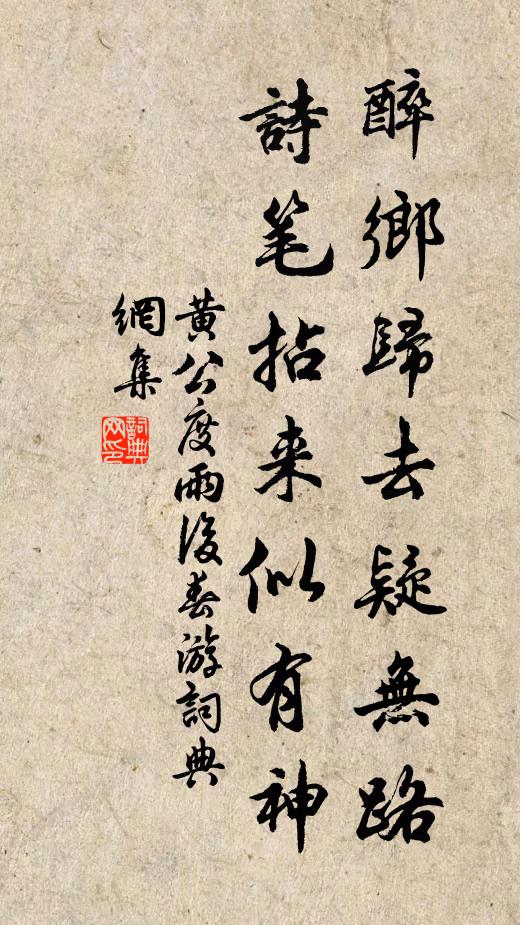 醉鄉歸去疑無路
詩笔拈来似有神
黄公度雨後春游詞典
網集
詞典
网印